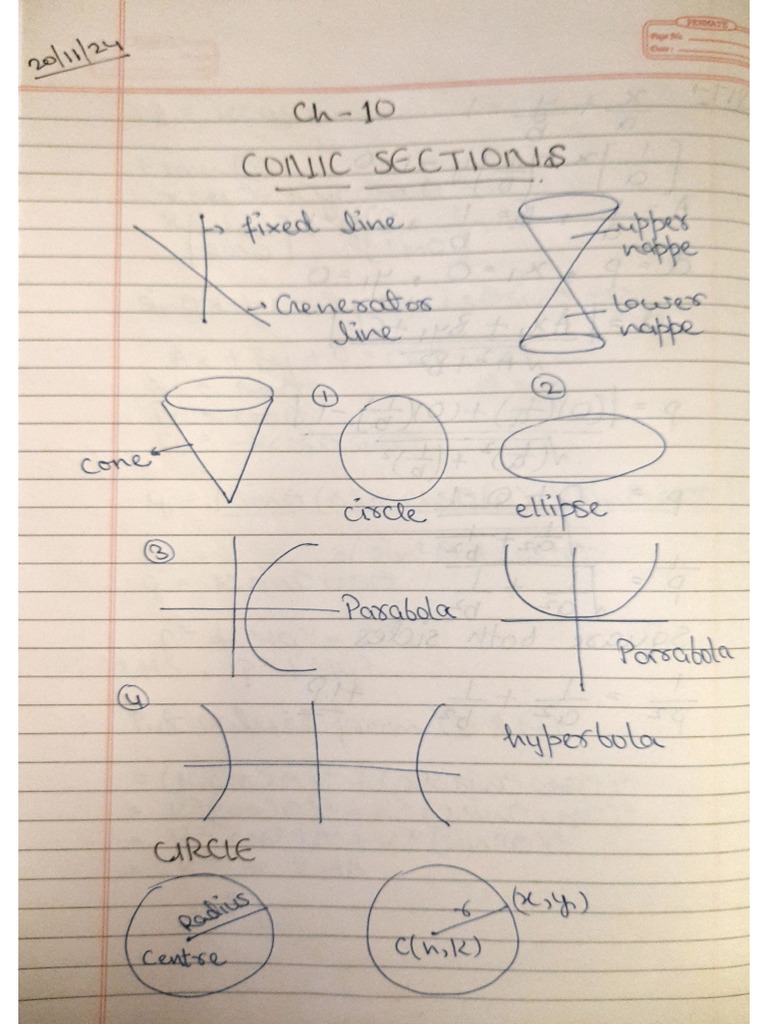 20/11/24
PERMATE
Page No.
Date:
Ch - 10
CONIC SECTIONS
fixed line
Generator
line
upper
nappe
Lower
nappe
cone
1
circle
2
ellipse
3
Parabola
Parrabola
4
hyperbola
CIRCLE
Radius
Centre
r
(x,y)
C(h,k)